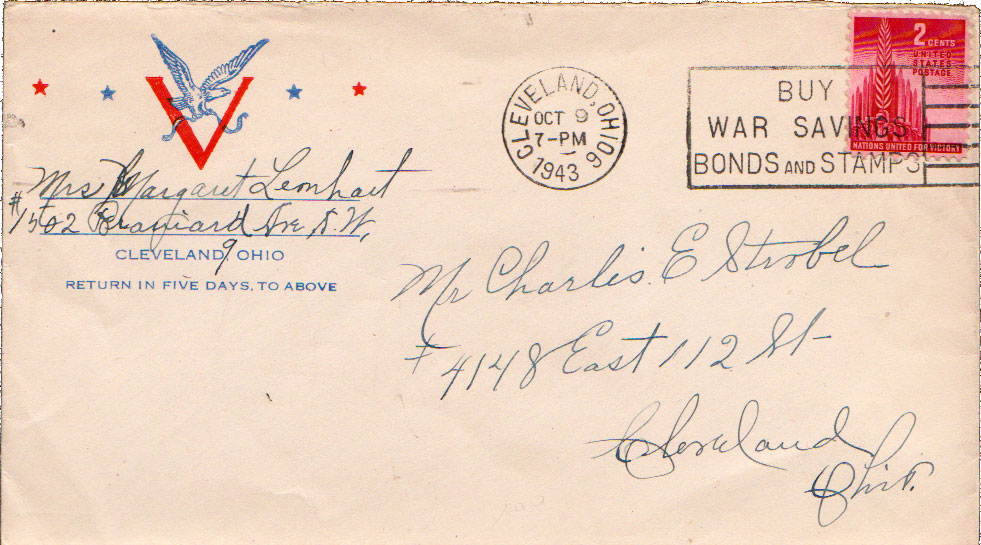 V
Mrs Margaret Leonhart
#1502 Brainard Ave S.W.
CLEVELAND 9 OHIO
RETURN IN FIVE DAYS, TO ABOVE
CLEVELAND, OHIO 6
OCT 9
7-PM
1943
BUY
WAR SAVINGS
BONDS AND STAMPS
2 CENTS
UNITED
STATES
POSTAGE
NATIONS UNITED FOR VICTORY
Mr Charlis. E Strobel
4148 East 112 St
Cleveland
Ohio.